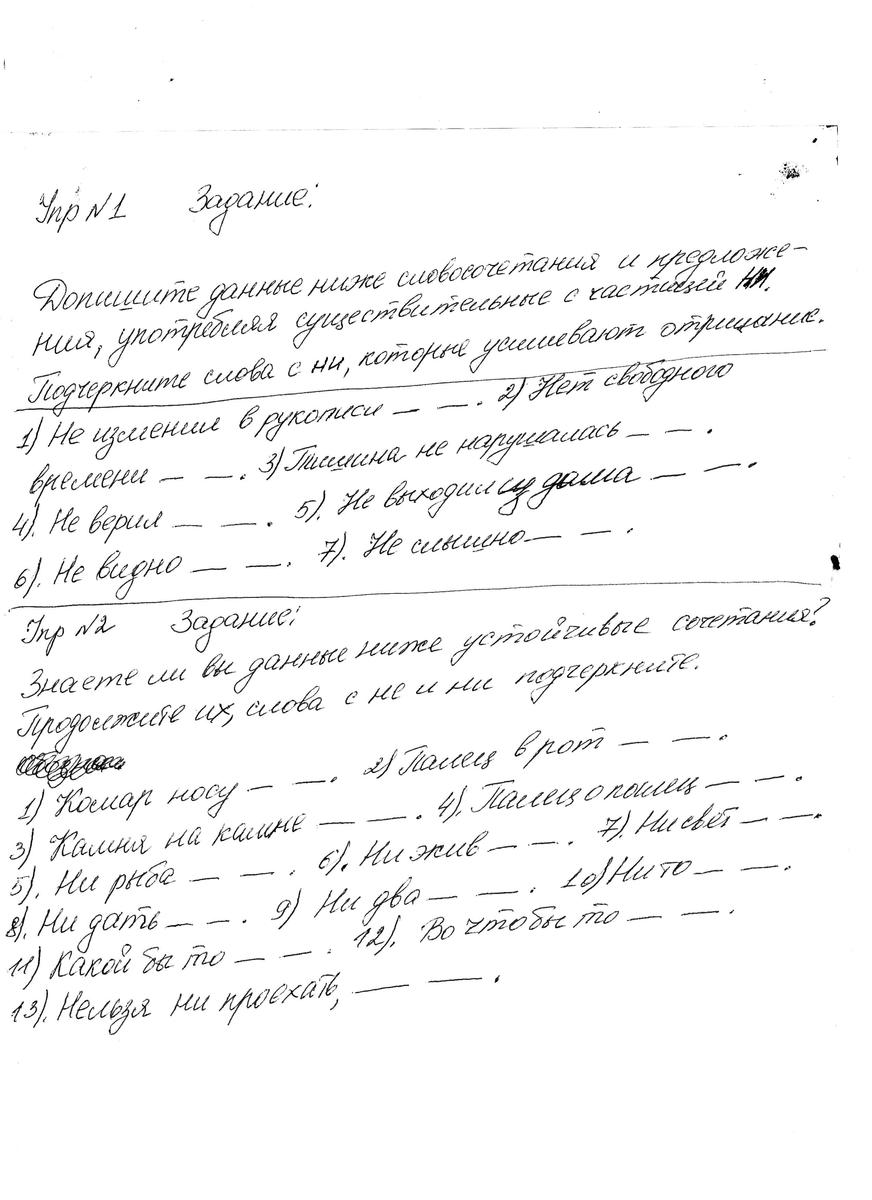 Упр N1 Задание:
Допишите данные ниже словосочетания и предложе-
ния, употребляя существительные с частицей ни.
Подчеркните слова с ни, которые усиливают отрицание.
1) Не изменил в рукописи — —. 2) Нет свободного
времени — —. 3) Тишина не нарушалась — —.
4). Не верил — —. 5). Не выходил из дома — —.
6). Не видно — —. 7). Не слышно — —.
Упр N2 Задание:
Знаете ли вы данные ниже устойчивые сочетания?
Продолжите их, слова с не и ни подчеркните.
1) Комар носу — —. 2) Палец в рот — —.
3) Камня на камне — —. 4). Палец о палец — —.
5). Ни рыба — —. 6). Ни жив — —. 7). Ни свет — —.
8). Ни дать — —. 9) Ни два — —. 10) Ни то — —.
11) Какой бы то — —. 12). Во что бы то — —.
13). Нельзя ни проехать, — —.